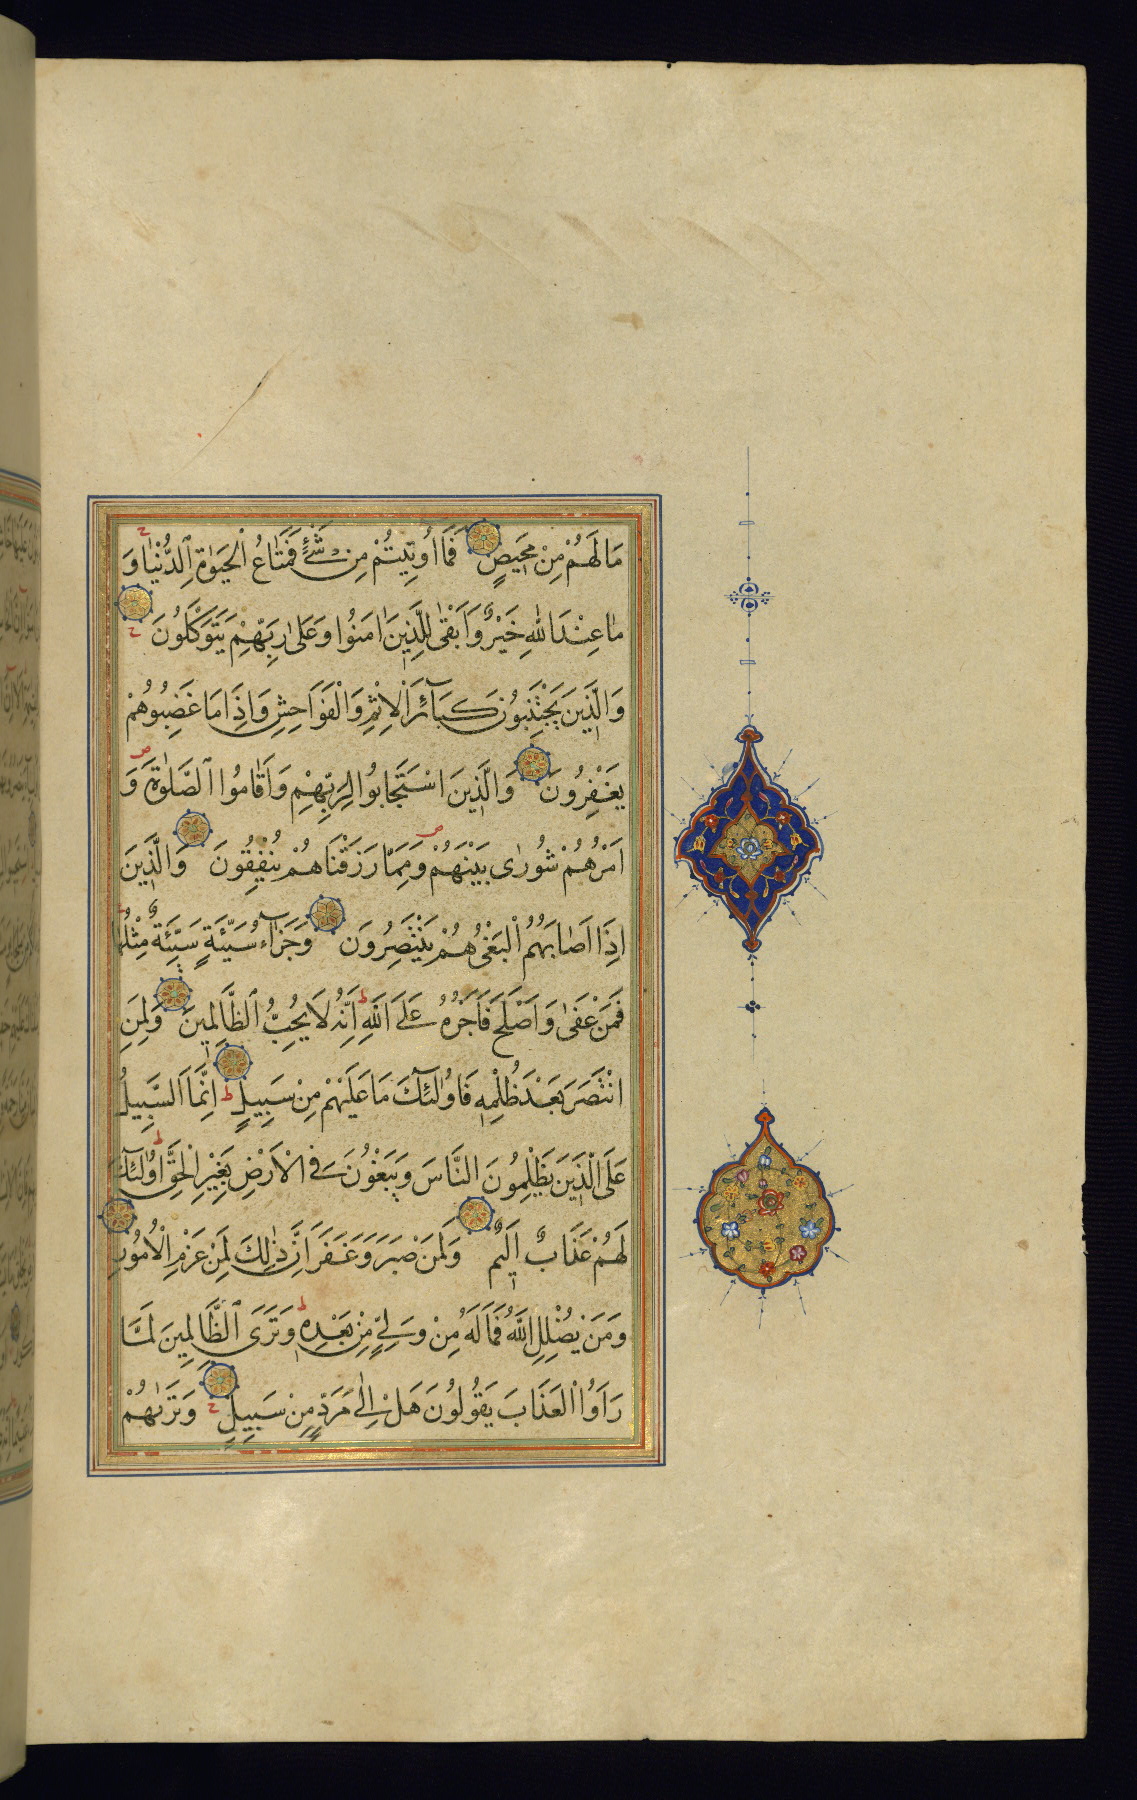 مَا لَهُمْ مِنْ مَحِيصٍ فَمَا أُوتِيتُمْ مِنْ شَىْءٍ فَمَتَاعُ الْحَيٰوةِ الدُّنْيَا وَ
مَا عِنْدَ اللّٰهِ خَيْرٌ وَاَبْقٰى لِلَّذِينَ اٰمَنُوا وَعَلٰى رَبِّهِمْ يَتَوَكَّلُونَ
وَالَّذِينَ يَجْتَنِبُونَ كَبَآئِرَ الْاِثْمِ وَالْفَوَاحِشَ وَاِذَا مَا غَضِبُوا هُمْ
يَغْفِرُونَ وَالَّذِينَ اسْتَجَابُوا لِرَبِّهِمْ وَاَقَامُوا الصَّلٰوةَ وَ
اَمْرُهُمْ شُورٰى بَيْنَهُمْ وَمِمَّا رَزَقْنَاهُمْ يُنْفِقُونَ وَالَّذِينَ
اِذَا اَصَابَهُمُ الْبَغْىُ هُمْ يَنْتَصِرُونَ وَجَزَآءُ سَيِّئَةٍ سَيِّئَةٌ مِثْلُهَا
فَمَنْ عَفٰى وَاَصْلَحَ فَاَجْرُهُ عَلَى اللّٰهِ اِنَّهُ لَا يُحِبُّ الظَّالِمِينَ وَلَمَنِ
انْتَصَرَ بَعْدَ ظُلْمِهِ فَاُولٰئِكَ مَا عَلَيْهِمْ مِنْ سَبِيلٍ اِنَّمَا السَّبِيلُ
عَلَى الَّذِينَ يَظْلِمُونَ النَّاسَ وَيَبْغُونَ فِى الْاَرْضِ بِغَيْرِ الْحَقِّ اُولٰئِكَ
لَهُمْ عَذَابٌ اَلِيمٌ وَلَمَنْ صَبَرَ وَغَفَرَ اِنَّ ذٰلِكَ لَمِنْ عَزْمِ الْاُمُورِ
وَمَنْ يُضْلِلِ اللّٰهُ فَمَا لَهُ مِنْ وَلِىٍّ مِنْ بَعْدِهِ وَتَرَى الظَّالِمِينَ لَمَّا
رَاَوُا الْعَذَابَ يَقُولُونَ هَلْ اِلٰى مَرَدٍّ مِنْ سَبِيلٍ وَتَرٰيهُمْ